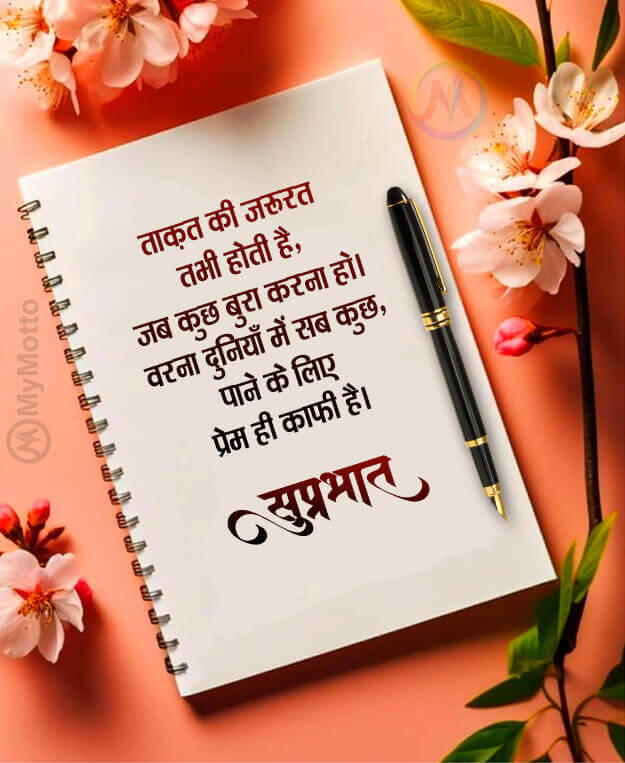 ताक़त की जरूरत
तभी होती है,
जब कुछ बुरा करना हो।
वरना दुनियाँ में सब कुछ,
पाने के लिए
प्रेम ही काफी है।
सुप्रभात
MyMotto